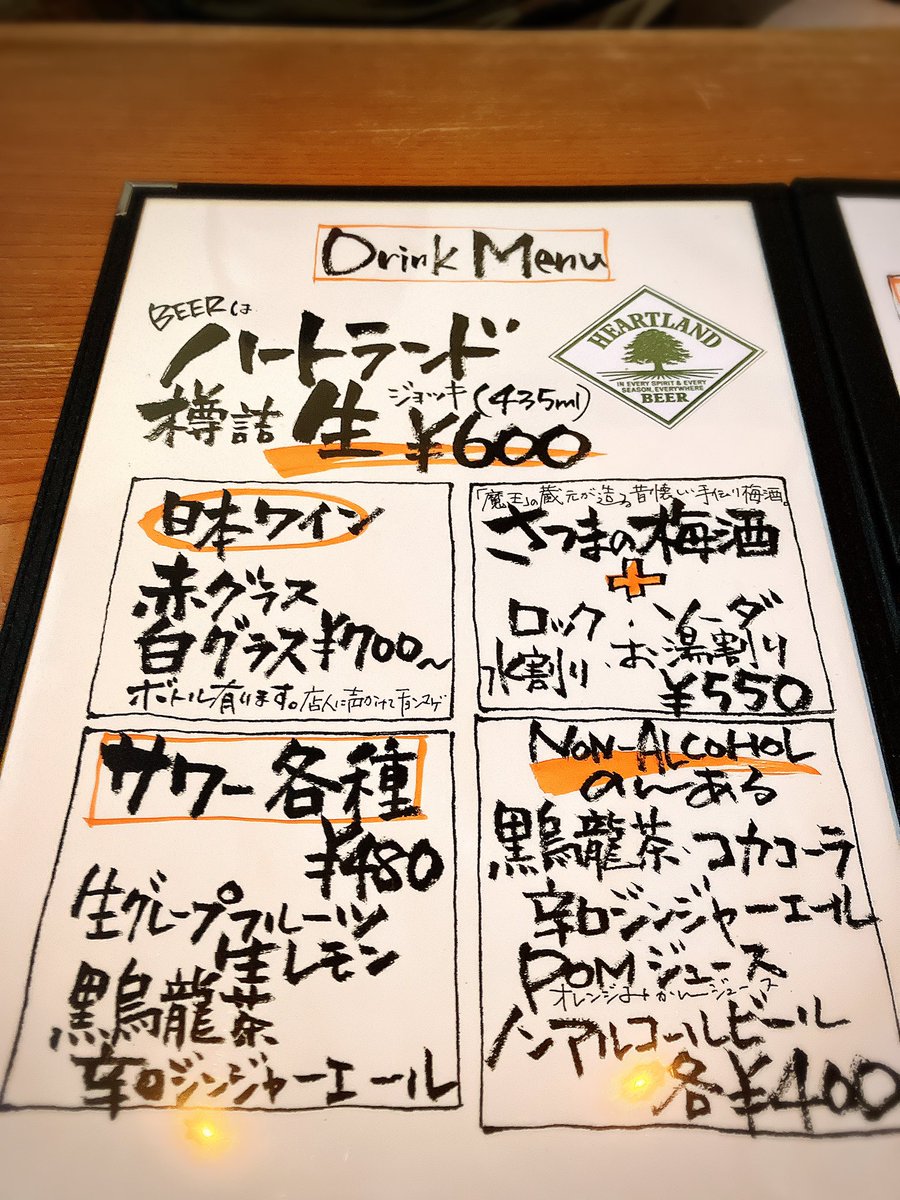 Drink Menu
BEERは
ハートランド
樽詰 生 ジョッキ (435ml)
¥600
HEARTLAND
IN EVERY SPIRIT & EVERY
SEASON, EVERYWHERE
BEER
日本ワイン
赤グラス
白グラス ¥700〜
ボトル有ります。店人に声かけてチョンマゲ
「魔王」の蔵元が造る昔懐しい手作り梅酒。
さつまの梅酒
+
ロック・ソーダ
水割り・お湯割り
¥550
サワー各種
¥480
生グレープフルーツ
生レモン
黒烏龍茶
辛口ジンジャーエール
NON-ALCOHOL
のんある
黒烏龍茶・コカコーラ
辛口ジンジャーエール
POMジュース
オレンジみかんジュース
ノンアルコールビール
各¥400